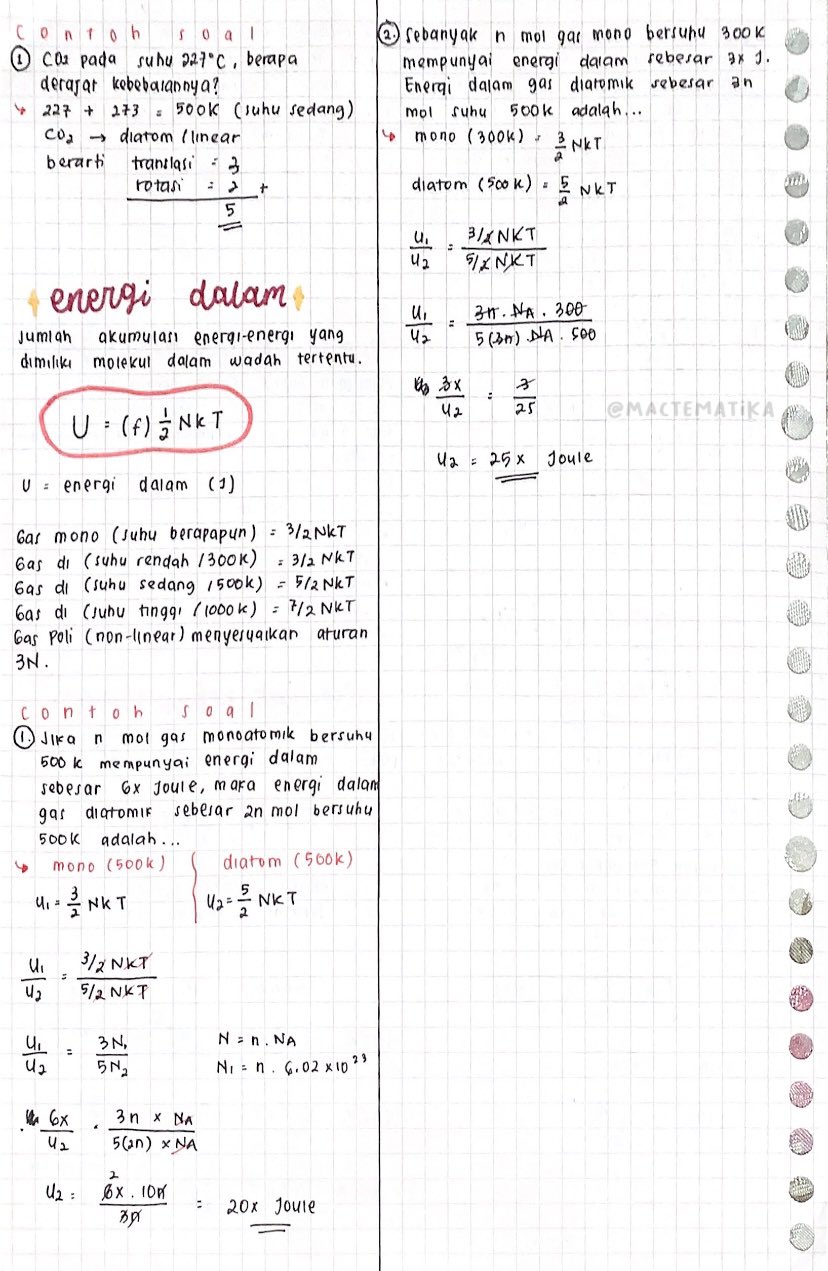 Contoh soal
① CO2 pada suhu 227°C, berapa
derajat kebebasannya?
↳ 227 + 273 = 500K (suhu sedang)
CO2 → diatom / linear
berarti translasi = 3
rotasi = 2 +
5
energi dalam
Jumlah akumulasi energi-energi yang
dimiliki molekul dalam wadah tertentu.
U = (f) 1/2 NkT
U = energi dalam (J)
Gas mono (suhu berapapun) = 3/2 NkT
Gas di (suhu rendah /300K) = 3/2 NkT
Gas di (suhu sedang /500K) = 5/2 NkT
Gas di (suhu tinggi /1000K) = 7/2 NkT
Gas Poli (non-linear) menyesuaikan aturan
3N.
contoh soal
①. Jika n mol gas monoatomik bersuhu
500 K mempunyai energi dalam
sebesar 6x Joule, maka energi dalam
gas diatomik sebesar 2n mol bersuhu
500K adalah...
↳ mono (500K) diatom (500K)
U1 = 3/2 NKT U2 = 5/2 NKT
U1/U2 = 3/2 NKT / 5/2 NKT
U1/U2 = 3N1 / 5N2 N = n . NA
N1 = n . 6.02 × 10²³
6x/U2 = 3n × NA / 5(2n) × NA
U2 = 6x . 10n / 3n = 20x Joule
2
②. Sebanyak n mol gas mono bersuhu 300K
mempunyai energi dalam sebesar 3x J.
Energi dalam gas diatomik sebesar 3n
mol suhu 500K adalah...
↳ mono (300K) = 3/2 NKT
diatom (500K) = 5/2 NKT
U1/U2 = 3/2 NKT / 5/2 NKT
U1/U2 = 3n . NA . 300 / 5(3n) . NA . 500
3x/U2 = 3/25
U2 = 25x Joule
@MACTEMATIKA